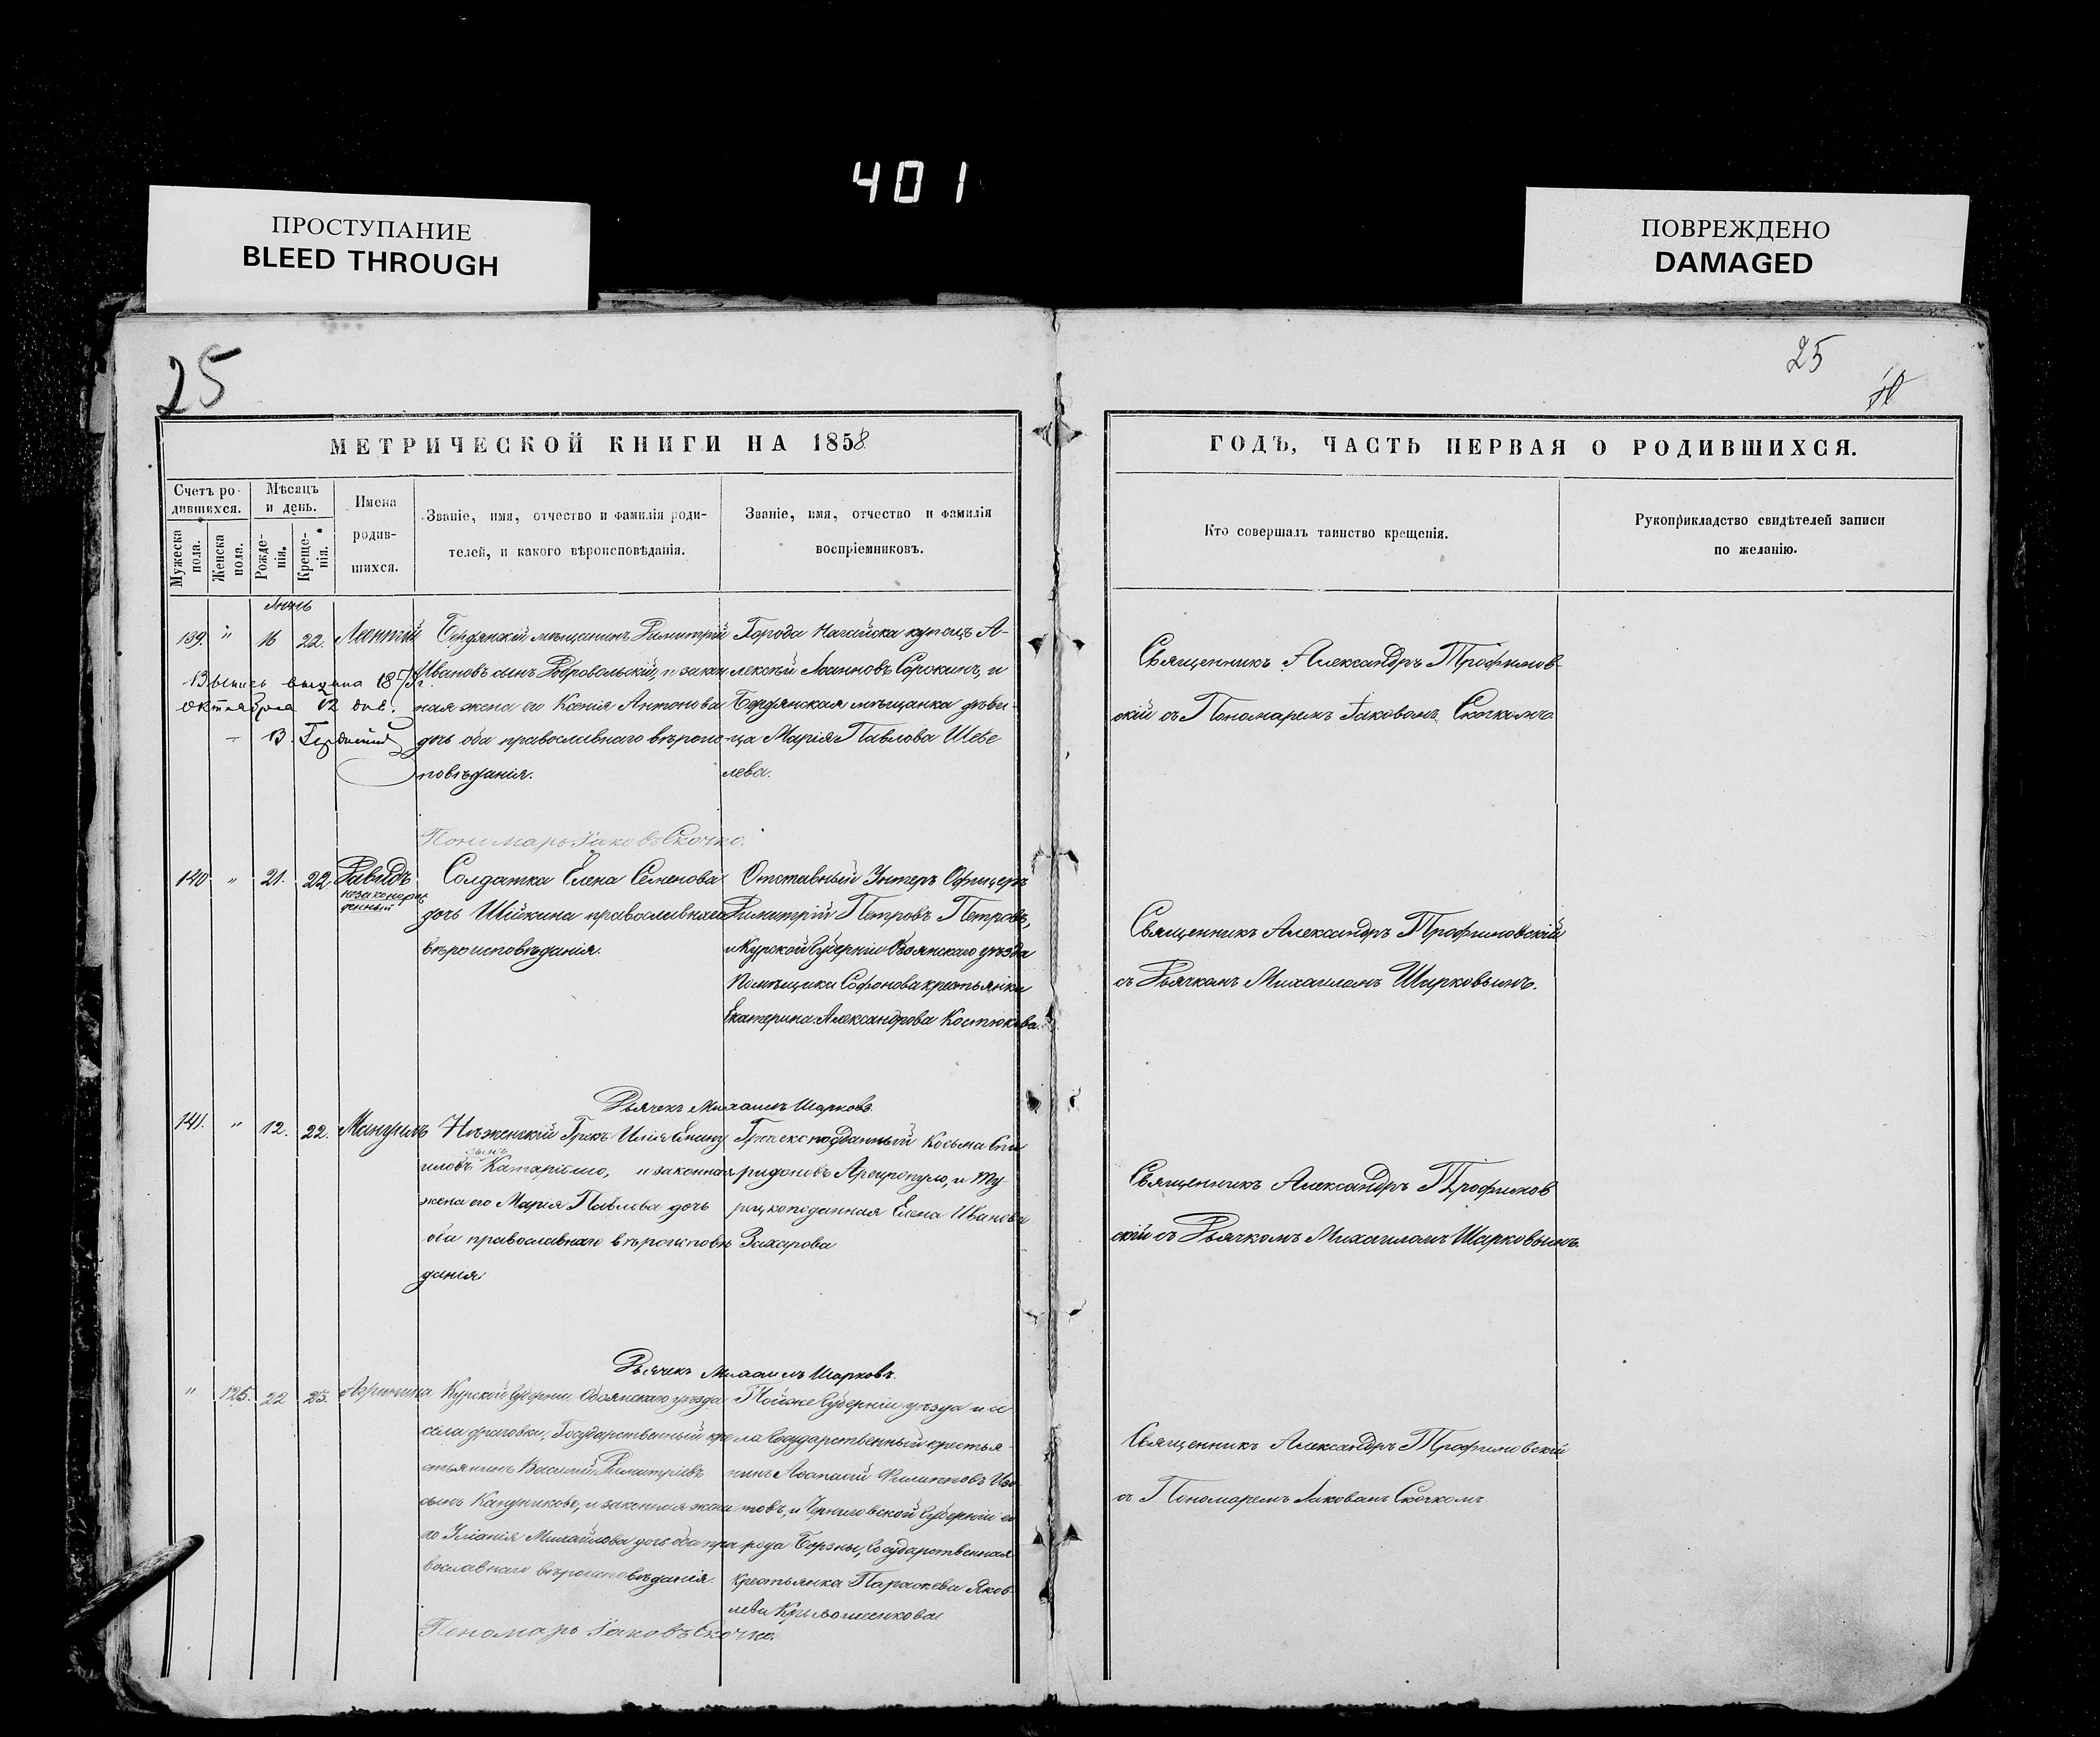 401
ПРОСТУПАНИЕ
BLEED THROUGH
ПОВРЕЖДЕНО
DAMAGED
25
25
МЕТРИЧЕСКОЙ КНИГИ НА 1858
ГОДЪ, ЧАСТЬ ПЕРВАЯ О РОДИВШИХСЯ.
Счетъ ро-
дившихся.
Мужеска пола.
Женска пола.
Мѣсяцъ
и день.
Рожде-
нія.
Креще-
нія.
Имена
родив-
шихся.
Званіе, имя, отчество и фамилія роди-
телей, и какого вѣроисповѣданія.
Званіе, имя, отчество и фамилія
воспріемниковъ.
Кто совершалъ таинство крещенія.
Рукоприкладство свидѣтелей записи
по желанію.
139. " 16 22. Леонтій
Бердянскій мѣщанинъ Димитрій
Ивановъ сынъ Добровольскій, и закон
ная жена его Ксенія Антонова
дочь оба православнаго вѣроис
повѣданія.
Города Ногайска купецъ А-
лексѣй Іоанновъ Сорокинъ, и
Бердянская мѣщанка дѣви-
ца Марія Павлова Шебе
лева.
Священникъ Александръ Трофимов-
скій съ Пономаремъ Іаковомъ Скочкомъ.
Выпись выдана 1875 г.
октября 12 дня.
Пономарь Іаковъ Скочко.
140 " 21. 22. Давидъ
незаконорож
денный
Солдатка Елена Семенова
дочь Шійкина православнаго
вѣроисповѣданія.
Отставный Унтеръ Офицеръ
Димитрій Петровъ Петровъ,
и Курской Губерніи Обоянскаго уѣзда
Помѣщика Софонова крестьянка
Екатерина Александрова Костюкова.
Священникъ Александръ Трофимовскій
съ Дьячкомъ Михаиломъ Шарковымъ.
Дьячекъ Михаилъ Шарковъ.
141. " 12. 22. Мануилъ
Нѣженскій Грекъ Илія
сынъ
жена его Марія Павлова дочь
оба православнаго вѣроисповѣ
данія.
Греческоподданный Косьма Спи
ридоновъ Аргиропуло, и Ту-
рецкоподанная Елена Иванова
Захарова
Священникъ Александръ Трофимов
скій съ Дьячкомъ Михаиломъ Шарковымъ.
Дьячекъ Михаилъ Шарковъ.
" 125. 22 23.
Курской Губерніи Обоянскаго уѣзда
села Государственный кре
стьянинъ Василій Димитріевъ
сынъ и законная жена
го Уліанія Михайлова дочь оба пра
вославнаго вѣроисповѣданія
Той же Губерніи уѣзда и се
ла Государственный крестья-
нинъ Филиповъ Изо
товъ, и Черниговской Губерніи го
рода Борзны, Государственная
крестьянка Параскева Яков
лева
Священникъ Александръ Трофимовскій
съ Пономаремъ Іаковомъ Скочкомъ
Пономарь Іаковъ Скочко.